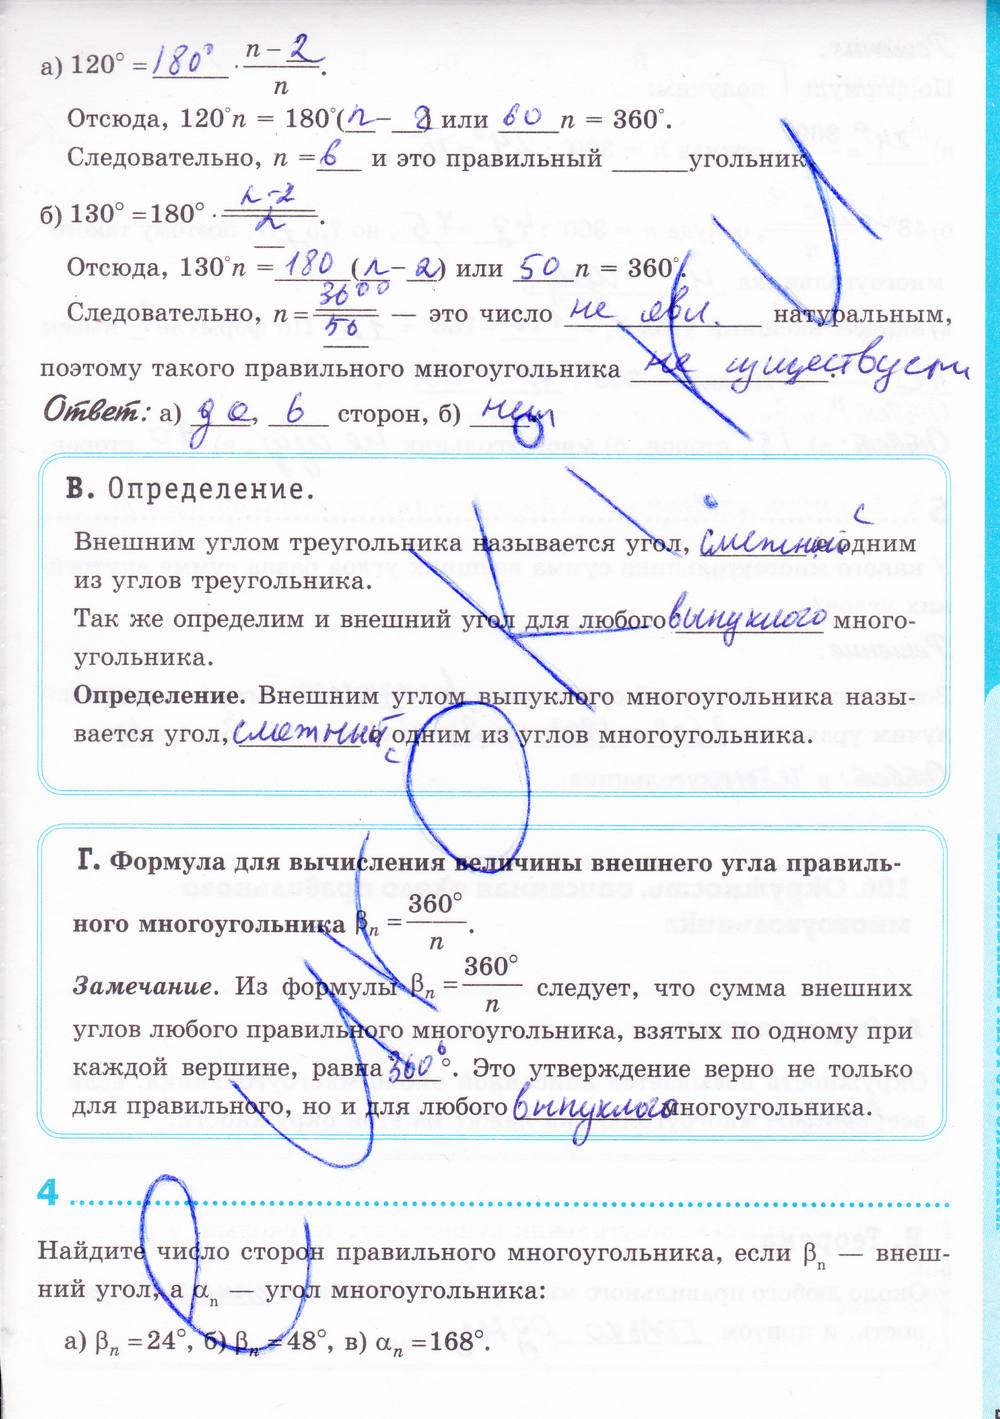 а) 120° = 180° · n – 2 / n.
Отсюда, 120°n = 180°(n – 2) или 60 n = 360°.
Следовательно, n = 6 и это правильный ______угольник.
б) 130° = 180° · n-2 / n.
Отсюда, 130°n = 180 (n – 2) или 50 n = 360°.
Следовательно, n = 3600 / 50 — это число не явл. натуральным,
поэтому такого правильного многоугольника не существует.
Ответ: а) да, 6 сторон, б) нет
В. Определение.
Внешним углом треугольника называется угол, смежный с одним
из углов треугольника.
Так же определим и внешний угол для любого выпуклого много-
угольника.
Определение. Внешним углом выпуклого многоугольника назы-
вается угол, смежный с одним из углов многоугольника.
Г. Формула для вычисления величины внешнего угла правиль-
ного многоугольника βn = 360° / n.
Замечание. Из формулы βn = 360° / n следует, что сумма внешних
углов любого правильного многоугольника, взятых по одному при
каждой вершине, равна 360°. Это утверждение верно не только
для правильного, но и для любого выпуклого многоугольника.
4
Найдите число сторон правильного многоугольника, если βn — внеш-
ний угол, а αn — угол многоугольника:
а) βn = 24°, б) βn = 48°, в) αn = 168°.